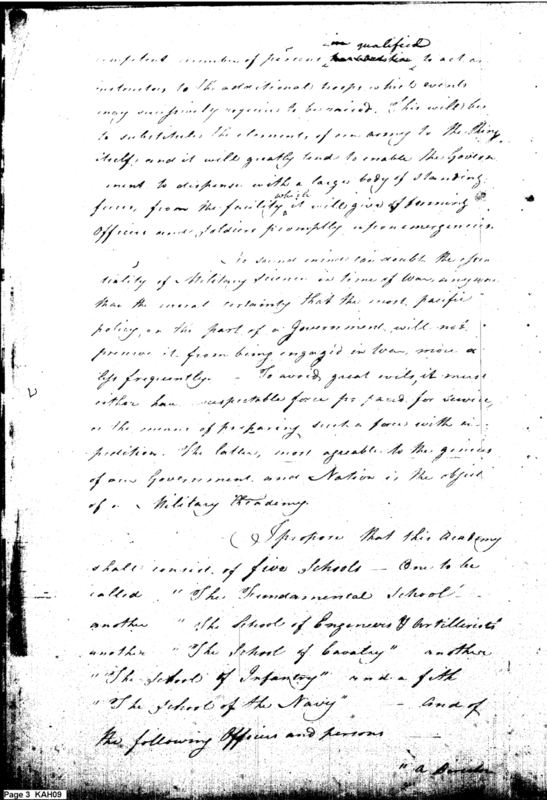 in qualified
competent number of persons to act as
instructors to the additional troops which events
may successively require to be raised. This will be
to substitute the elements of an army to the thing
itself and it will greatly tend to enable the Govern
ment to dispense with a large body of standing
forces, from the facility which it will give of forming
Officers and Soldiers promptly upon emergencies.
No sound mind can doubt the essen
tiality of Military Science in time of War, any more
than the moral certainty that the most pacific
policy, on the part of a Government, will not
preserve it from being engaged in War, more or
less frequently. – To avoid great evils, it must
either have respectable force prepared for service,
or the means of preparing such a force with ex-
pedition. The latter, most agreeable to the genius
of our Government and Nation is the object
of a Military Academy.
I propose that this Academy
shall consist of five Schools – One to be
called "The Fundamental School"
another "The School of Engineers & Artillerists"
another "The School of Cavalry" another
"The School of Infantry" and a fifth
"The School of the Navy" – And of
the following Officers and persons
"A Director
Page 3 KAH09